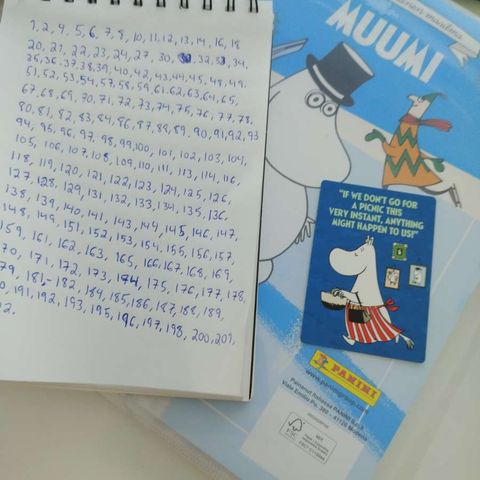 1, 2, 4, 5, 6, 7, 8, 10, 11, 12, 13, 14, 16, 18
20, 21, 22, 23, 24, 27, 30, 32, 33, 34,
35, 36, 37, 38, 39, 40, 42, 43, 44, 45, 48, 49,
51, 52, 53, 54, 57, 58, 59, 61, 62, 63, 64, 65,
67, 68, 69, 70, 71, 72, 73, 74, 75, 76, 77, 78,
80, 81, 82, 83, 84, 86, 87, 88, 89, 90, 91, 92, 93
94, 95, 96, 97, 98, 99, 100, 101, 102, 103, 104,
105, 106, 107, 108, 109, 110, 111, 113, 114, 116,
118, 119, 120, 121, 122, 123, 124, 125, 126,
127, 128, 129, 131, 132, 133, 134, 135, 136,
138, 139, 140, 141, 143, 144, 145, 146, 147,
148, 149, 151, 152, 153, 154, 155, 156, 157,
159, 161, 162, 163, 165, 166, 167, 168, 169,
70, 171, 172, 173, 174, 175, 176, 177, 178,
79, 181, 182, 184, 185, 186, 187, 188, 189,
0, 191, 192, 193, 195, 196, 197, 198, 200, 201,
2.
maailma
MUUMI
"IF WE DON'T GO FOR
A PICNIC THIS
VERY INSTANT, ANYTHING
MIGHT HAPPEN TO US!"
PANINI
www.paninigroup.com
Painanut Italiassa PANINI S.p.A.
Viale Emilio Po, 380 - 41126 Modena
FSC
MIX